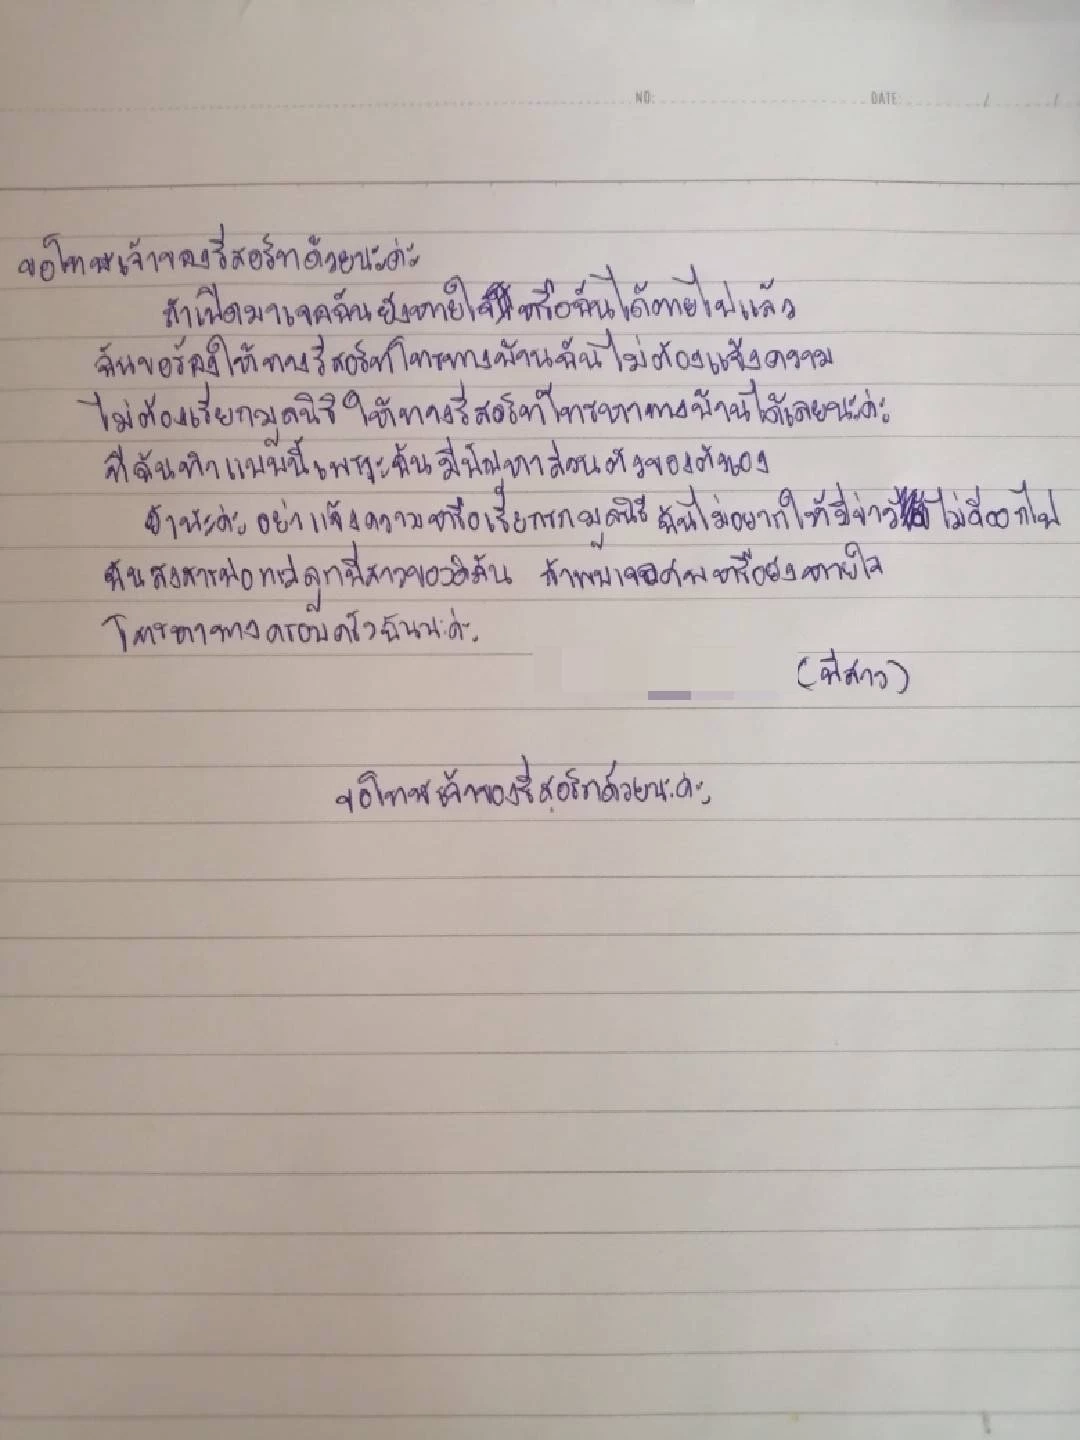 NO: DATE: / /
ขอโทษเจ้าของรีสอร์ทด้วยนะค่ะ
ถ้าเปิดมาเจอฉันยังหายใจ หรือฉันได้ตายไปแล้ว
ฉันขอร้องให้ทางรีสอร์ทโทรหาทางบ้านฉันไม่ต้องแจ้งความ
ไม่ต้องเรียกมูลนิธิ ให้ทางรีสอร์ทโทรหาทางบ้านได้เลยนะค่ะ
ที่ฉันทำแบบนี้เพราะฉันมีปัญหาส่วนตัวของตัวเอง
ย้ำนะค่ะ อย่าแจ้งความหรือเรียกรถมูลนิธิ ฉันไม่อยากให้มีข่าวไม่ดีออกไป
ฉันสงสารพ่อแม่ลูกพี่สาวของดิฉัน ถ้าพบเจอศพหรือยังหายใจ
โทรหาทางครอบครัวฉันนะค่ะ
(พี่สาว)
ขอโทษเจ้าของรีสอร์ทด้วยนะค่ะ